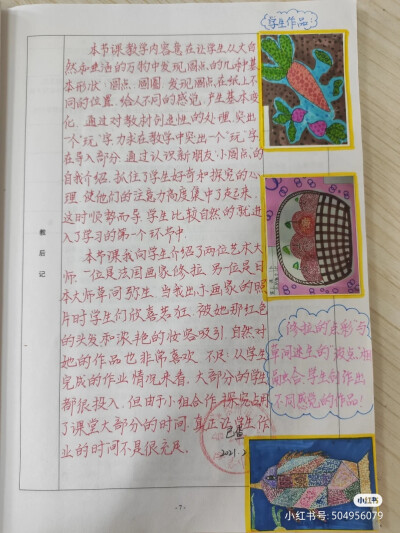 学生作品:
教后记
本节课教学内容意在让学生从大自
然和生活的万物中发现圆点的几种基
本形状:圆点、圆圈,发现圆点在纸上不
同的位置,给人不同的感觉,产生基本变
化。通过对教材创造性的处理,突出
一个"玩"字,力求在教学中突出一个"玩"字,
在导入部分,通过认识新朋友"小圆点"的
自我介绍,抓住了学生好奇和探究的心
理,使他们的注意力高度集中了起来,
这时顺势而导,学生比较自然的就进
入了学习的第一个环节中。
本节课我向学生介绍了两位艺术大
师,一位是法国画家修拉,另一位是日
本大师草间弥生,当我出示画家的照
片时学生们欣喜若狂,被她那红色
的头发和浓艳的妆容吸引,自然对
她的作品也非常喜欢。不足:从学生
完成的作业情况来看,大部分的学生
都很投入,但由于小组合作探究占用
了课堂大部分的时间,真正让学生作
业的时间不是很充足。
修拉的点彩与
草间弥生的"波点"相
融合,学生创作出
不同感觉的作品!
已查
2021.
-7-
小红书
小红书号: 504956079